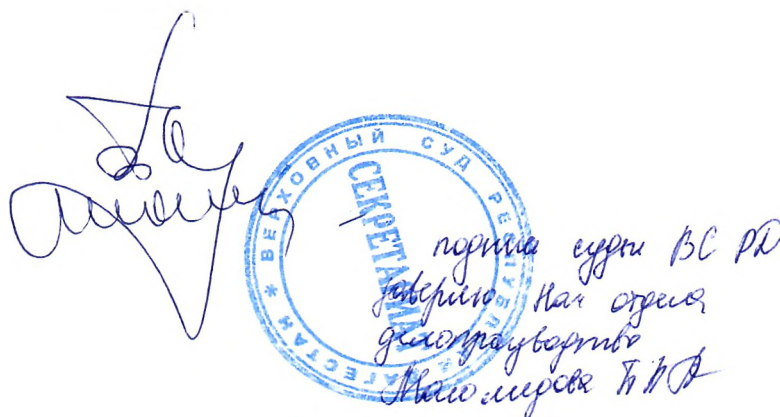 ВЕРХОВНЫЙ СУД РЕСПУБЛИКИ ДАГЕСТАН *
СЕКРЕТАРИАТ
подпись судьи ВС РД
заверяю Нач отдела
делопроизводства
Магомедова